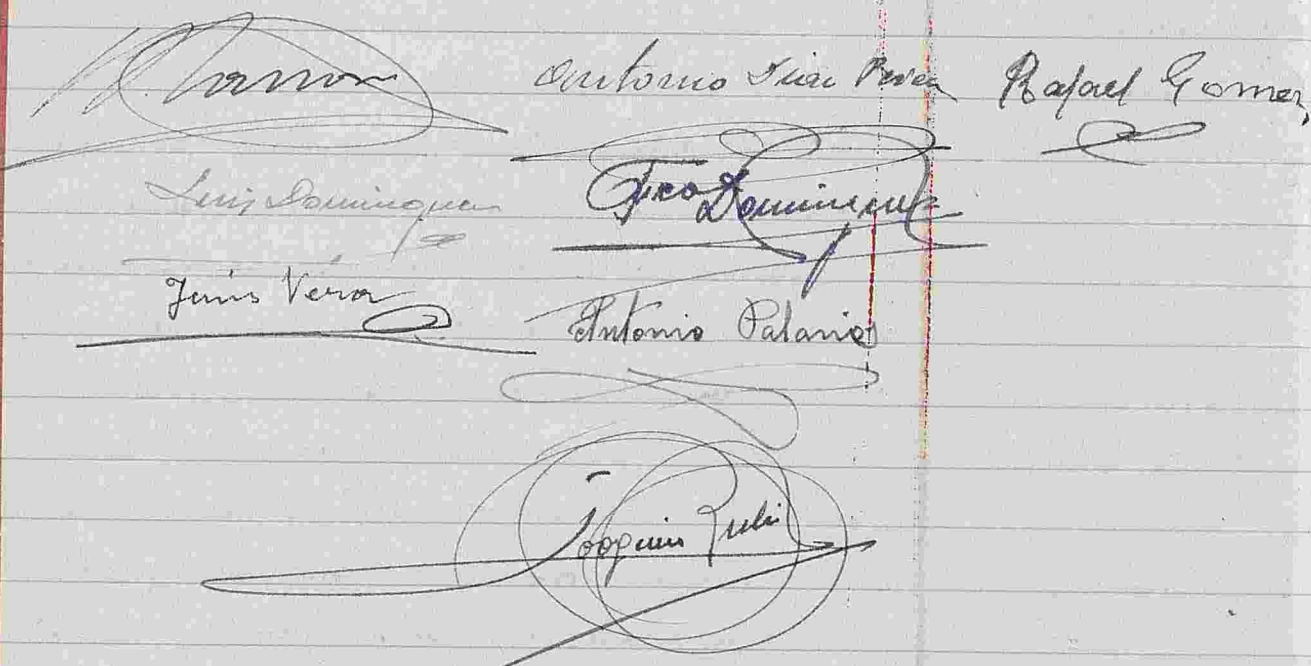 Antonio Rafael Gomez
Luis Dominguez Fco Dominguez
Jesús Vera Antonio Palacios
Joaquin Rubi